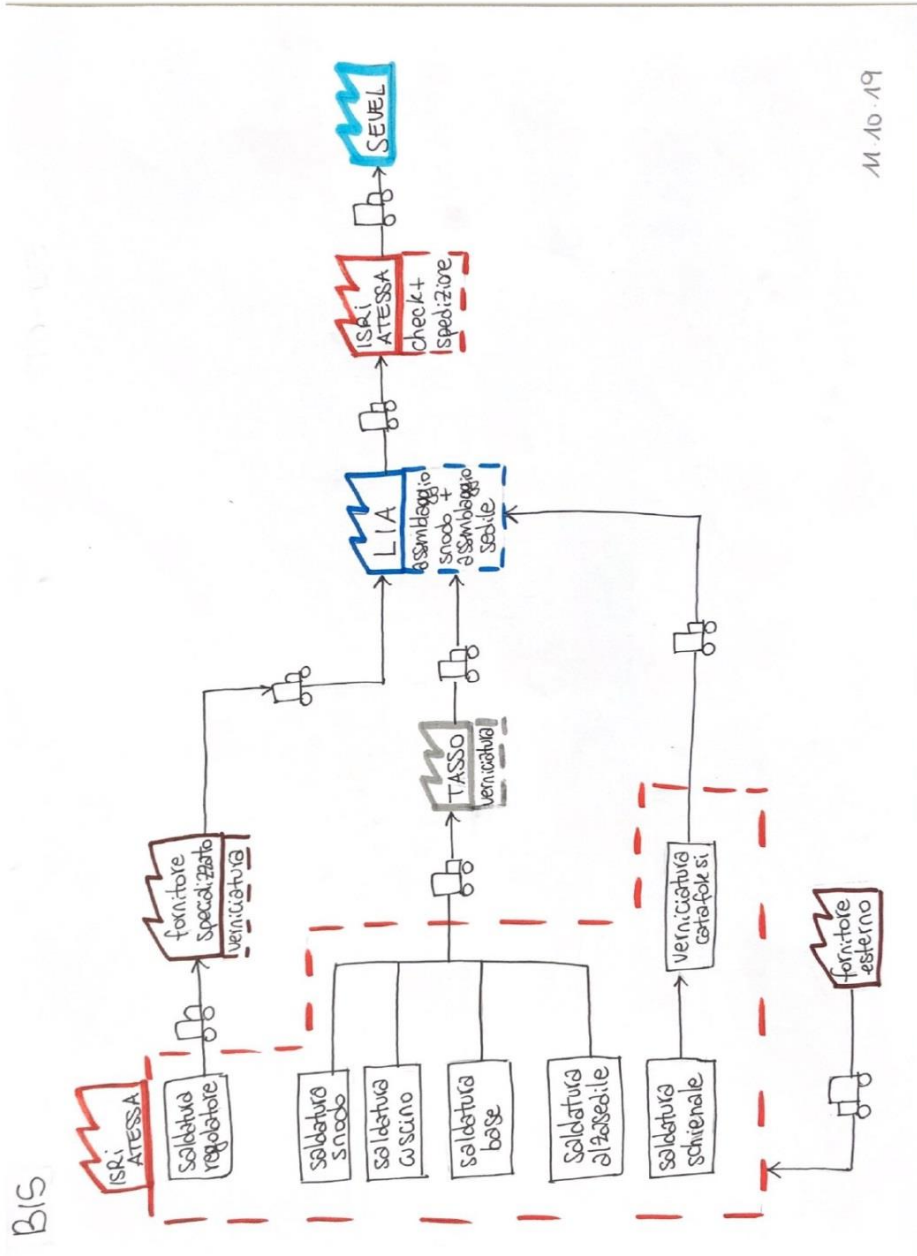 BIS
ISRi
ATESSA
saldatura
regolatore
saldatura
snodo
saldatura
cuscino
saldatura
base
saldatura
alzasedile
saldatura
schienale
fornitore
specializzato
verniciatura
verniciatura
catafolesi
fornitore
esterno
TASSO
verniciatura
LIA
assemblaggio
snodo +
assemblaggio
sedile
ISRi
ATESSA
check +
spedizione
SEVEL
11.10.19